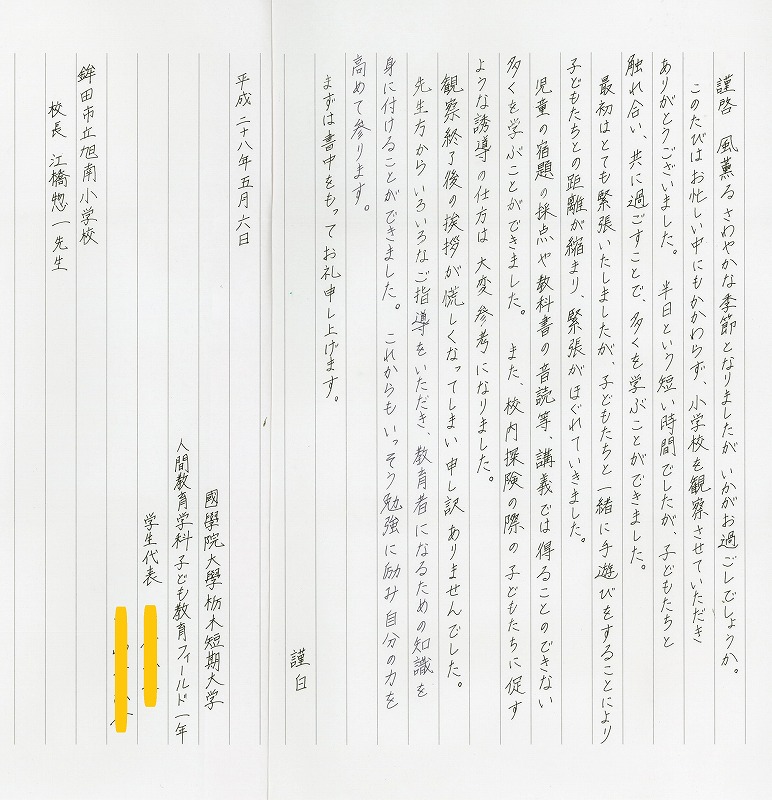 謹啓　風薫るさわやかな季節となりましたが　いかがお過ごしでしょうか。
このたびはお忙しい中にもかかわらず、小学校を観察させていただき
ありがとうございました。　半日という短い時間でしたが、子どもたちと
触れ合い、共に過ごすことで、多くを学ぶことができました。
最初はとても緊張いたしましたが、子どもたちと一緒に手遊びをすることにより
子どもたちとの距離が縮まり、緊張がほぐれていきました。
児童の宿題の採点や教科書の音読等、講義では得ることのできない
多くを学ぶことができました。　また、校内探険の際の子どもたちに促す
ような誘導の仕方は大変参考になりました。
観察終了後の挨拶が慌しくなってしまい申し訳ありませんでした。
先生方からいろいろなご指導をいただき、教育者になるための知識を
身に付けることができました。　これからもいっそう勉強に励み自分の力を
高めて参ります。
まずは書中をもってお礼申し上げます。
謹白
平成二十八年五月六日
國學院大學栃木短期大学
人間教育学科子ども教育フィールド一年
学生代表
鉾田市立旭南小学校
校長　江橋惣一先生